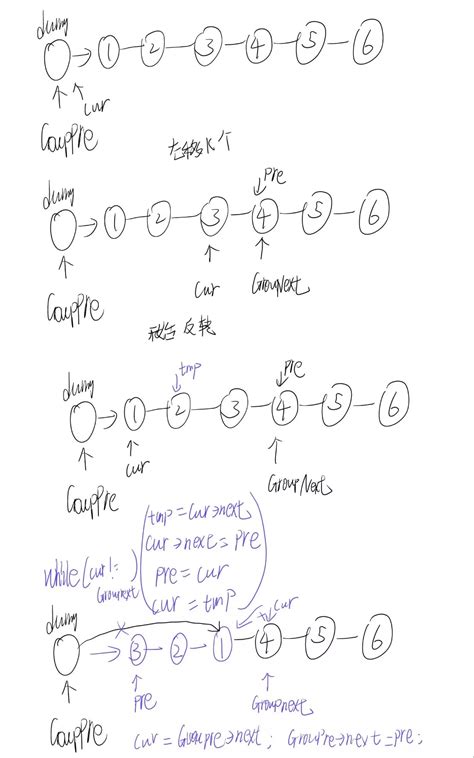 dumy
1 2 3 4 5 6
cur
GroupPre
右移K个
dumy
Pre
1 2 3 4 5 6
cur
GroupNext
GroupPre
反转
dumy
tmp
Pre
1 2 3 4 5 6
cur
GroupNext
GroupPre
while(cur != Groupnext)
tmp = cur→next
cur→next = pre
pre = cur
cur = tmp
dumy
cur
3 2 1 4 5 6
pre
Groupnext
GroupPre
cur = Groupre→next; GroupPre→next = pre;